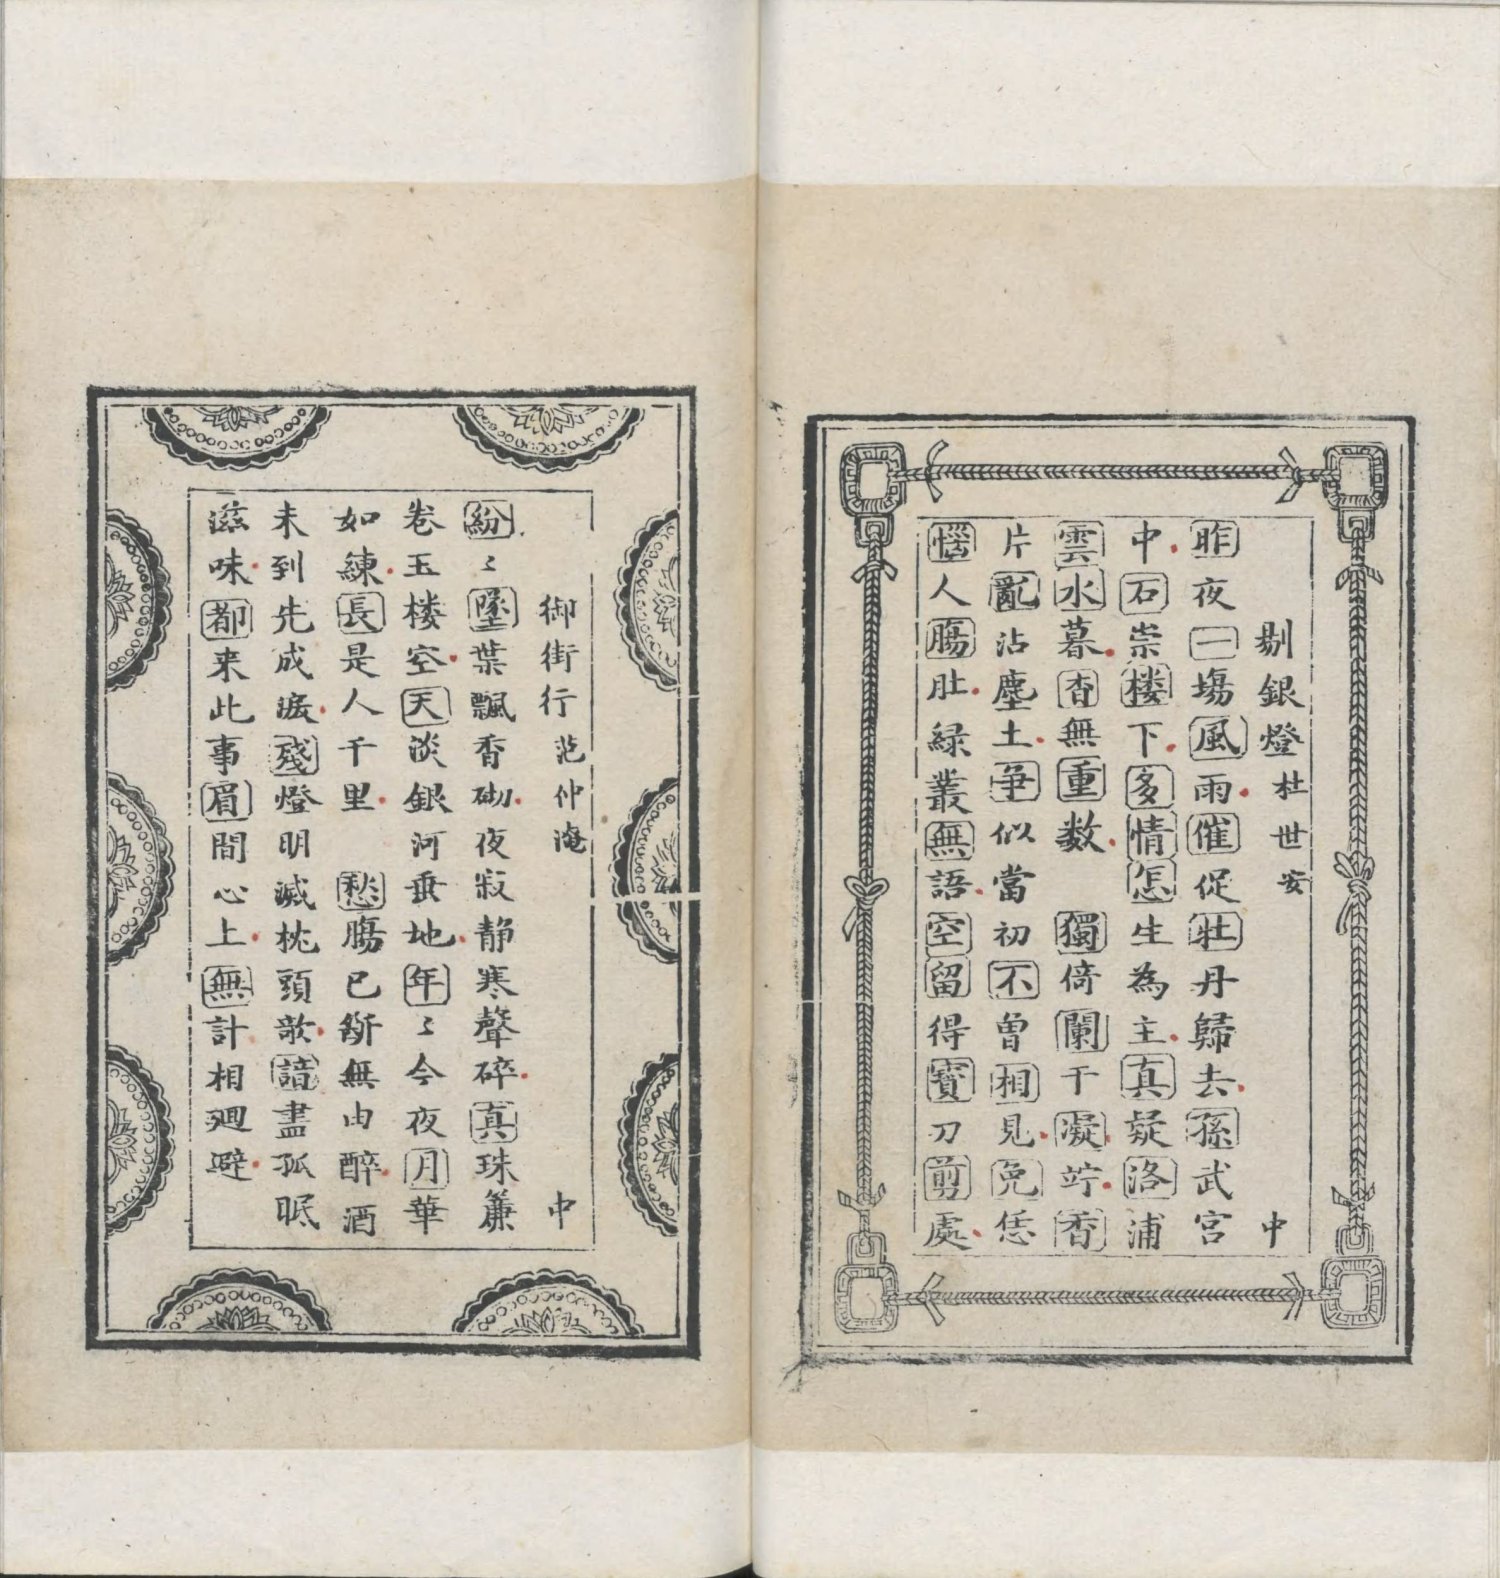 剔銀燈 杜世安 中
昨夜一塲風雨催促牡丹歸去孫武宮
中石崇楼下多情怎生為主真疑洛浦
雲水暮杳無重数 獨倚闌干凝竚香
片亂沾塵土爭似當初不曾相見免恁
惱人腸肚緑叢無語空留得寶刀剪處
御街行 范仲淹 中
紛〻墜葉飄香砌夜寂静寒聲碎真珠簾
卷玉楼空天淡銀河垂地年〻今夜月華
如練長是人千里 愁腸已断無由醉酒
未到先成淚殘燈明滅枕頭欹諳盡孤眠
滋味都来此事眉間心上無計相廻避